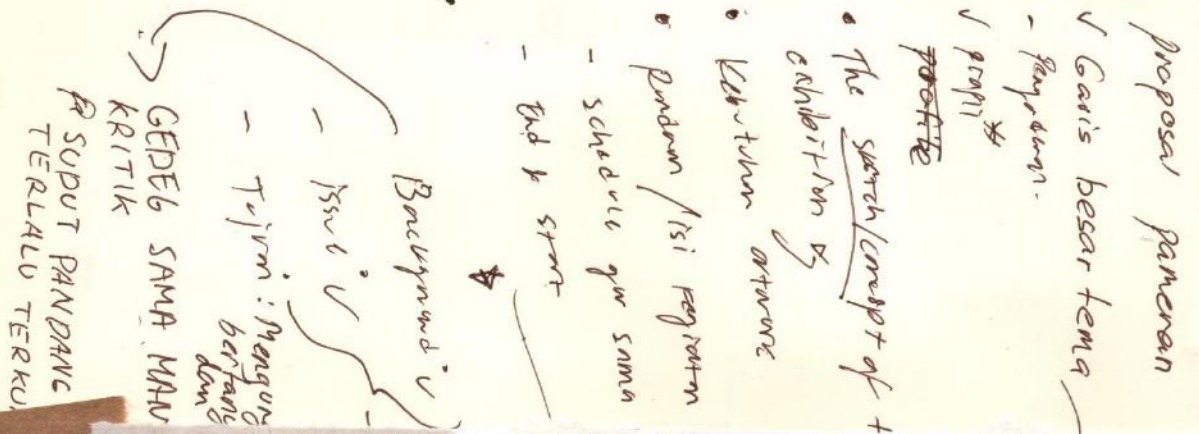 proposal pameran
✓ Garis besar tema
-
✓ profil *
profile
• The sketch/concept of t
exhibition
• Kebutuhan
• Rundown / isi kegiatan
- schedule gw sama
- End & start
Background ✓
- issue ✓
- Tujuan : Mengun
bertang
dan
GEDEG SAMA MAN
KRITIK
SUDUT PANDANG
TERLALU TERKU